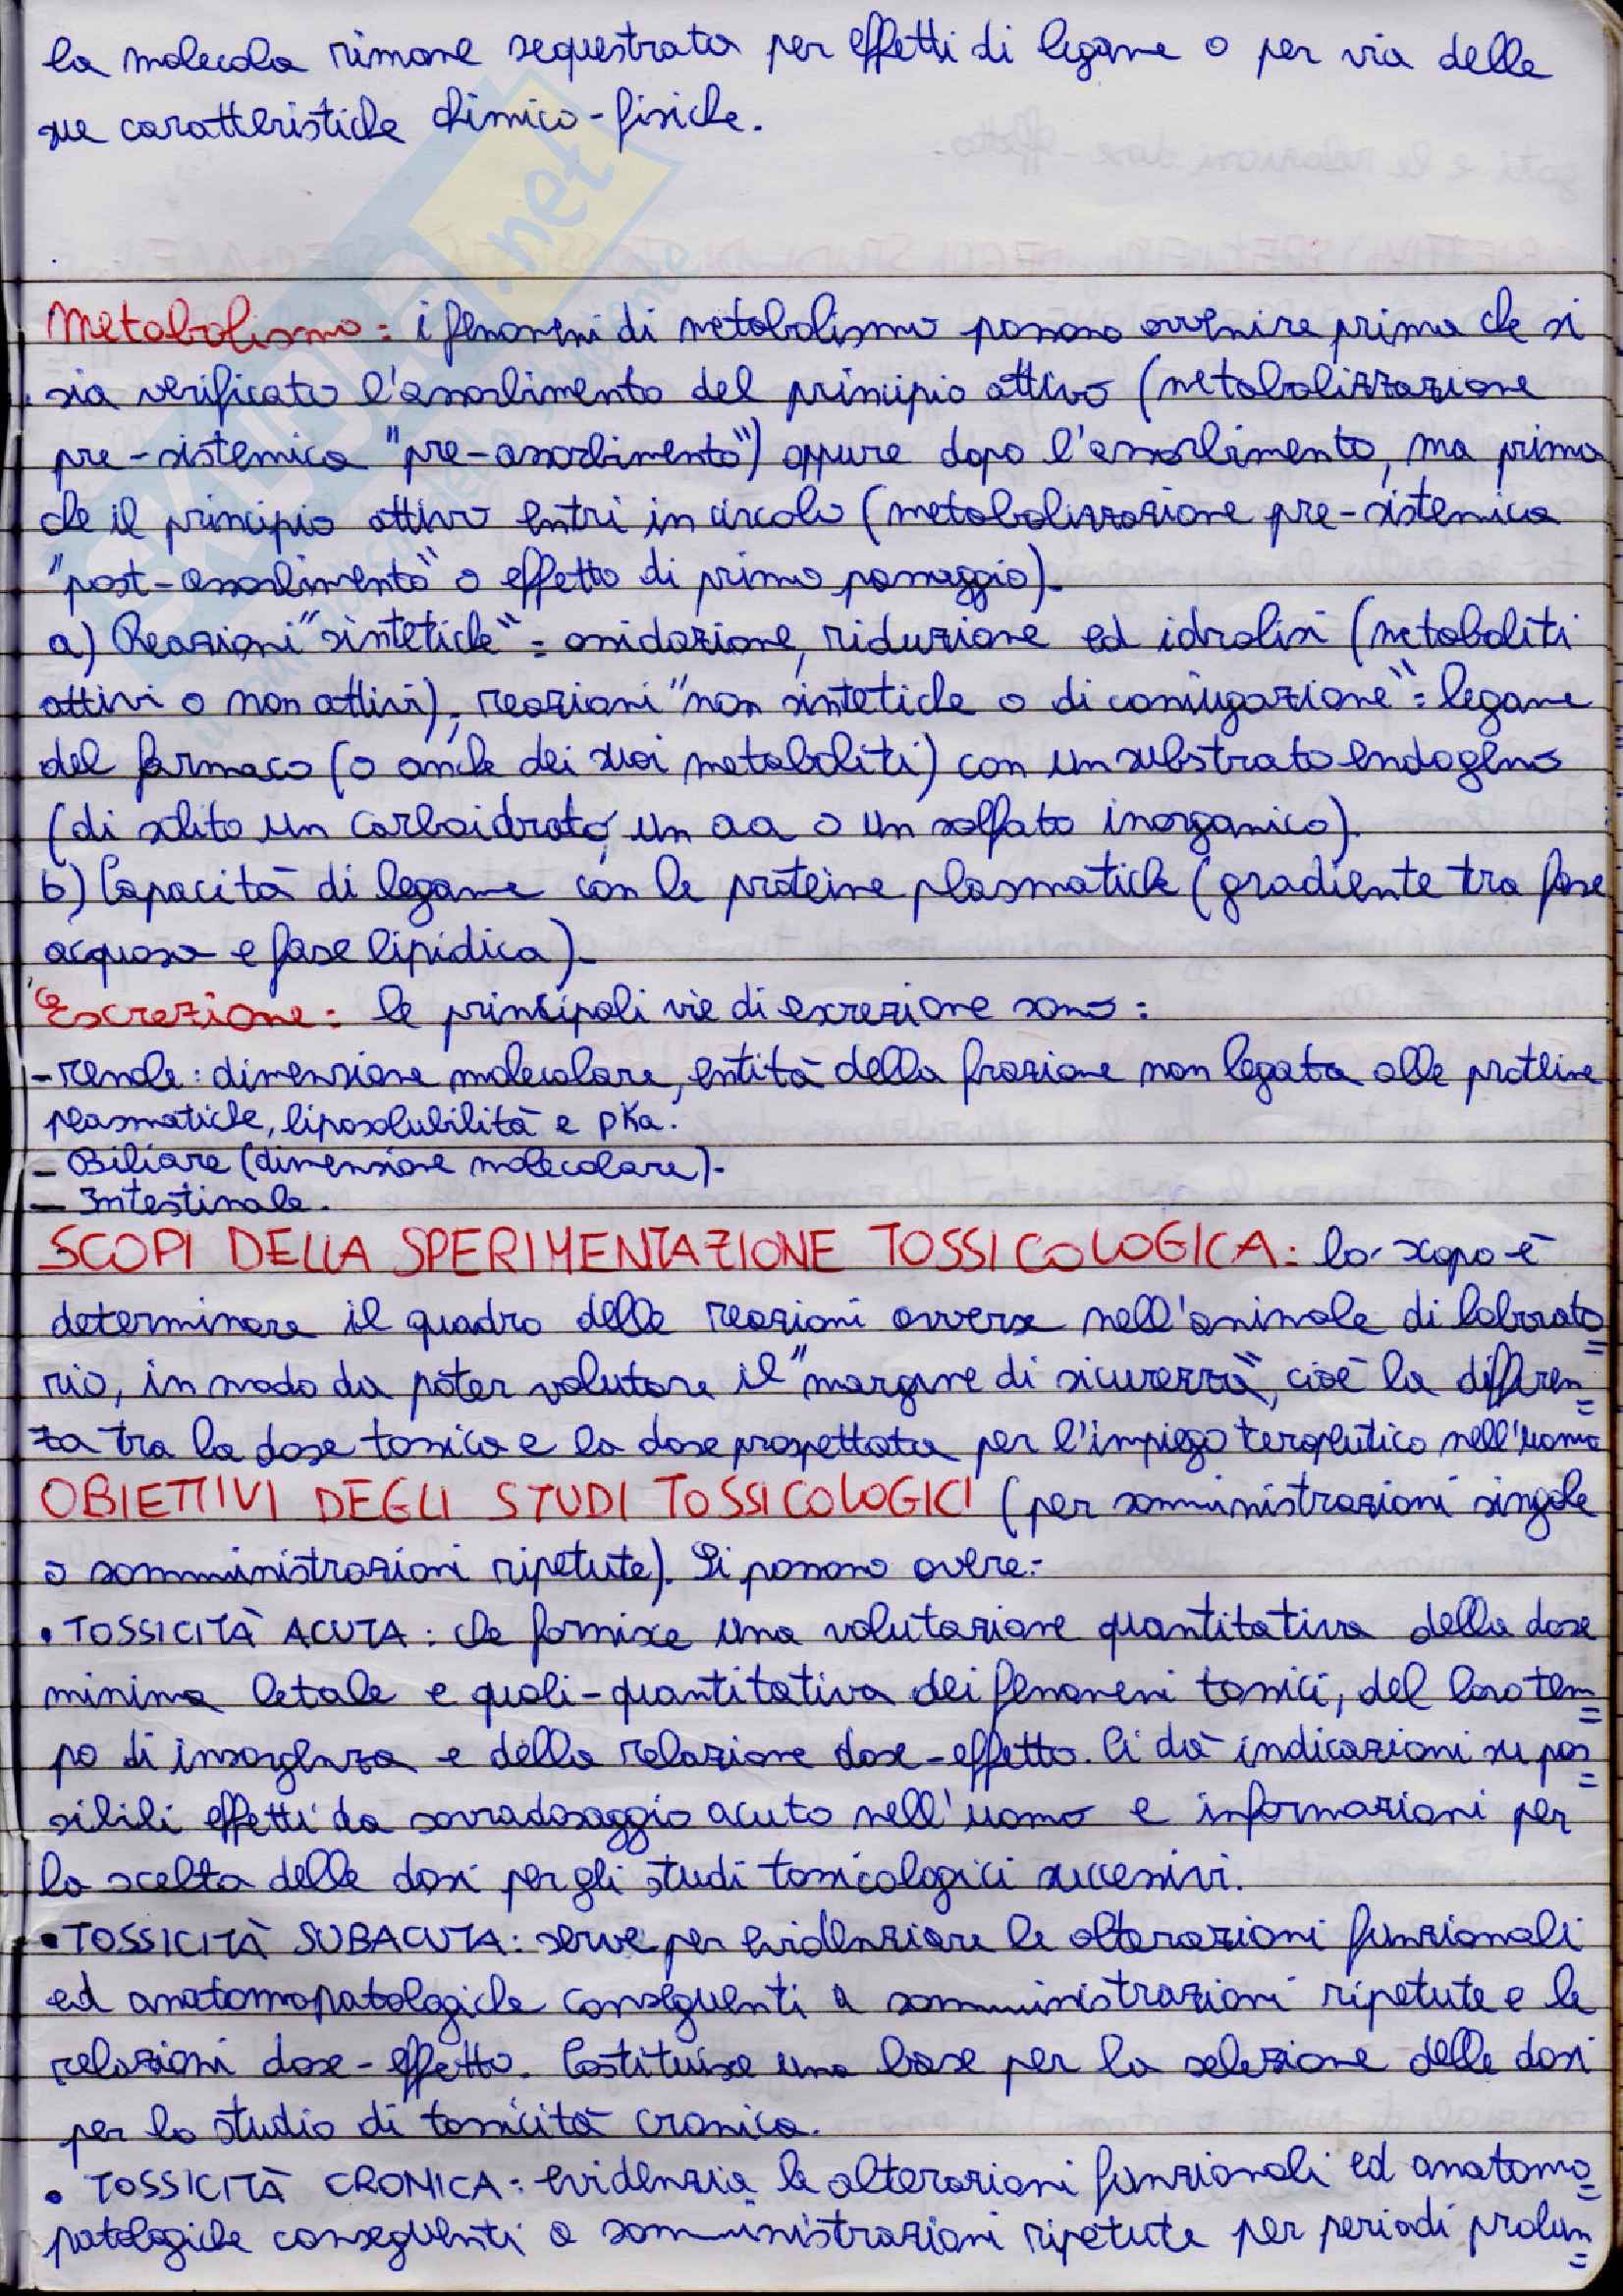 la molecola rimane sequestrata per effetti di legame o per via delle
sue caratteristiche chimico-fisiche.
Metabolismo: i fenomeni di metabolismo possono avvenire prima che si
sia verificato l'assorbimento del principio attivo (metabolizzazione
pre-sistemica "pre-assorbimento") oppure dopo l'assorbimento, ma prima
che il principio attivo entri in circolo (metabolizzazione pre-sistemica
"post-assorbimento" o effetto di primo passaggio).
a) Reazioni "sintetiche": ossidazione, riduzione ed idrolisi (metaboliti
attivi o non attivi), reazioni "non sintetiche o di coniugazione": legame
del farmaco (o anche dei suoi metaboliti) con un substrato endogeno
(di solito un carboidrato, un aa o un solfato inorganico).
b) Capacità di legame con le proteine plasmatiche (gradiente tra fase
acquosa e fase lipidica).
Escrezione: le principali vie di escrezione sono:
- renale: dimensione molecolare, entità della frazione non legata alle proteine
plasmatiche, liposolubilità e pKa.
- Biliare (dimensione molecolare).
- Intestinale.
SCOPI DELLA SPERIMENTAZIONE TOSSICOLOGICA: lo scopo è
determinare il quadro delle reazioni avverse nell'animale di laborato=
rio, in modo da poter valutare il "margine di sicurezza", cioè la differen=
za tra la dose tossica e la dose prospettata per l'impiego terapeutico nell'uomo
OBIETTIVI DEGLI STUDI TOSSICOLOGICI (per somministrazioni singole
o somministrazioni ripetute). Si possono avere:
• TOSSICITÀ ACUTA: che fornisce una valutazione quantitativa della dose
minima letale e quali-quantitativa dei fenomeni tossici, del loro tem=
po di insorgenza e della relazione dose-effetto. Ci dà indicazioni su pos=
sibili effetti da sovradosaggio acuto nell'uomo e informazioni per
la scelta delle dosi per gli studi tossicologici successivi.
• TOSSICITÀ SUBACUTA: serve per evidenziare le alterazioni funzionali
ed anatomopatologiche conseguenti a somministrazioni ripetute e le
relazioni dose-effetto. Costituisce una base per la selezione delle dosi
per lo studio di tossicità cronica.
• TOSSICITÀ CRONICA: evidenzia le alterazioni funzionali ed anatomo=
patologiche conseguenti a somministrazioni ripetute per periodi prolun=